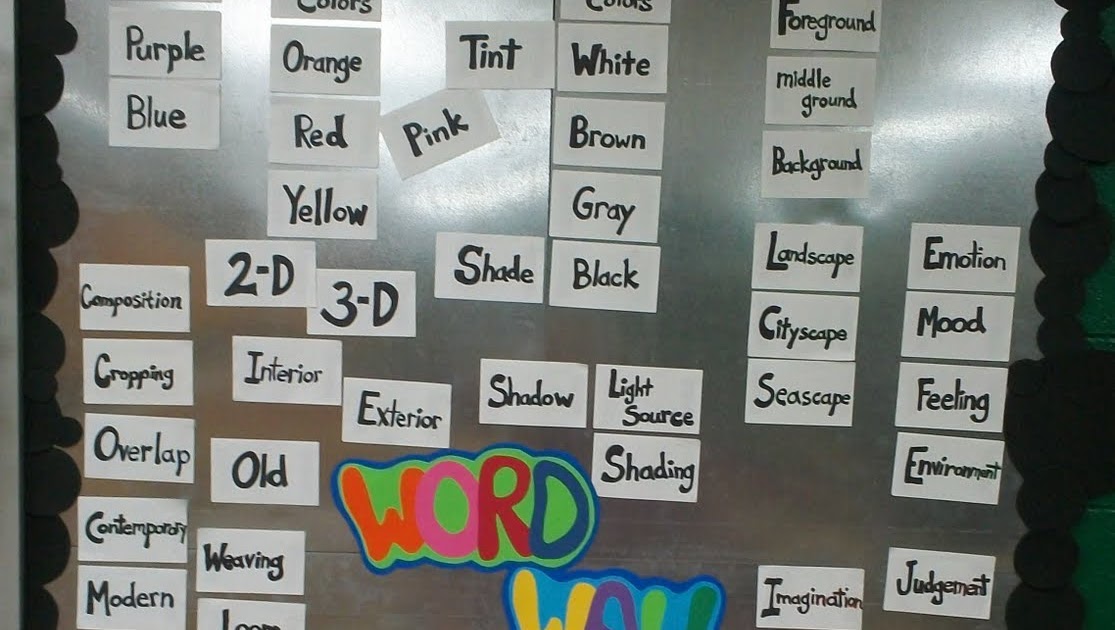 Colors
Colors
Foreground
Purple
Orange
Tint
White
middle
ground
Blue
Red
Pink
Brown
Background
Yellow
Gray
2-D
3-D
Shade
Black
Landscape
Emotion
Composition
Cityscape
Mood
Cropping
Interior
Exterior
Shadow
Light
Source
Seascape
Feeling
Overlap
Old
Shading
Environment
WORD
WALL
Contemporary
Weaving
Modern
Loom
Imagination
Judgement